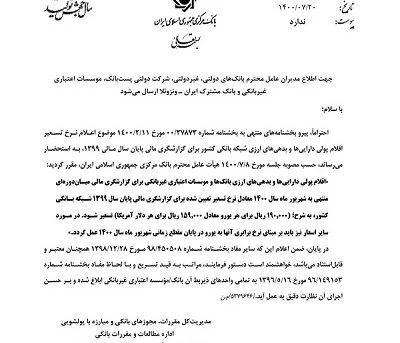 بانک مرکزی جمهوری اسلامی ایران
بسمه تعالی
تاریخ: ۱۴۰۰/۰۷/۲۰
پیوست: ندارد
جهت اطلاع مدیران عامل محترم بانک‌های دولتی، غیردولتی، شرکت دولتی پست‌بانک، موسسات اعتباری
غیربانکی و بانک مشترک ایران – ونزوئلا ارسال می‌شود
با سلام؛
احتراماً، پیرو بخشنامه‌های منتهی به بخشنامه شماره ۰۰/۳۷۸۷۳ مورخ ۱۴۰۰/۲/۱۱ موضوع اعلام نرخ تسعیر
اقلام پولی دارایی‌ها و بدهی‌های ارزی شبکه بانکی کشور برای گزارشگری مالی پایان سال ۱۳۹۹، به استحضار
می‌رساند، حسب مصوبه جلسه مورخ ۱۴۰۰/۷/۸ هیأت عامل محترم بانک مرکزی جمهوری اسلامی ایران، مقرر گردید:
«اقلام پولی دارایی‌ها و بدهی‌های ارزی بانک‌ها و موسسات اعتباری غیربانکی برای گزارشگری مالی میان‌دوره‌ای
منتهی به شهریور ماه سال ۱۴۰۰ معادل نرخ تسعیر تعیین شده برای گزارشگری مالی پایان سال ۱۳۹۹ شبکه بانکی
کشور، به شرح؛ (۱۹۰,۰۰۰ ریال برای هر یورو معادل ۱۵۹,۰۰۰ ریال برای هر دلار آمریکا) تسعیر شود. در مورد
سایر اسعار نیز باید بر مبنای نرخ برابری آنها به یورو در پایان مقطع زمانی شهریور ماه سال ۱۴۰۰ عمل گردد.»
در پایان، ضمن اعلام این که سایر مفاد بخشنامه شماره ۹۸/۴۵۰۵۰۸ مورخ ۱۳۹۸/۱۲/۲۸ همچنان معتبر و
قابل‌استناد می‌باشد، خواهشمند است دستور فرمایند، مراتب به قید تسریع و با لحاظ مفاد بخشنامه شماره
۹۶/۱۴۹۱۵۳ مورخ ۱۳۹۶/۵/۱۶ به تمامی واحدهای ذیربط آن بانک/موسسه اعتباری غیربانکی ابلاغ شده و بر حسن
اجرای آن نظارت دقیق به عمل آید./۵۳۷۹۶۴۶/م
مدیریت کل مقررات، مجوزهای بانکی و مبارزه با پولشویی
اداره مطالعات و مقررات بانکی